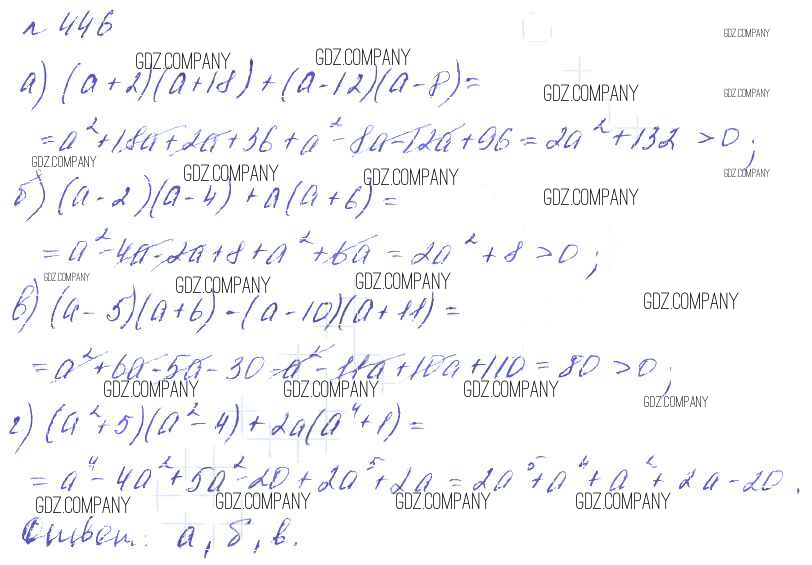 n 446
GDZ.COMPANY
GDZ.COMPANY GDZ.COMPANY
а) (a+2)(a+18)+(a-12)(a-8)=
GDZ.COMPANY GDZ.COMPANY
=a²+18a+2a+36+a²-8a-12a+96=2a²+132>0;
GDZ.COMPANY GDZ.COMPANY GDZ.COMPANY GDZ.COMPANY
б) (a-2)(a-4)+a(a+6)=
GDZ.COMPANY
=a²-4a-2a+8+a²+6a=2a²+8>0;
GDZ.COMPANY GDZ.COMPANY GDZ.COMPANY
в) (a-5)(a+6)-(a-10)(a+11)=
GDZ.COMPANY
=a²+6a-5a-30-a²-11a+10a+110=80>0;
GDZ.COMPANY GDZ.COMPANY GDZ.COMPANY GDZ.COMPANY
г) (a²+5)(a²-4)+2a(a⁴+1)=
=a⁴-4a²+5a²-20+2a⁵+2a=2a⁵+a⁴+a²+2a-20.
GDZ.COMPANY GDZ.COMPANY GDZ.COMPANY GDZ.COMPANY
Ответ: а, б, в.